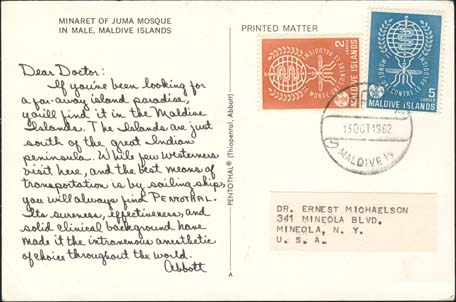 MINARET OF JUMA MOSQUE
IN MALE, MALDIVE ISLANDS
Dear Doctor:
If you've been looking for
a far-away island paradise,
you'll find it in the Maldive
Islands. The Islands are just
south of the great Indian
peninsula. While few westerners
visit here, and the best means of
transportation is by sailing ships,
you will always find PENTOTHAL.
Its sureness, effectiveness, and
solid clinical background have
made it the intravenous anesthetic
of choice throughout the world.
Abbott
PENTOTHAL® (Thiopental, Abbott)
A
PRINTED MATTER
2
LAREES
MALDIVE ISLANDS
MONDE UNI CONTRE LE PALUDISME
5
LAREES
MALDIVE ISLANDS
13 OCT 1962
MALDIVE IS
DR. ERNEST MICHAELSON
341 MINEOLA BLVD.
MINEOLA, N. Y.
U. S. A.